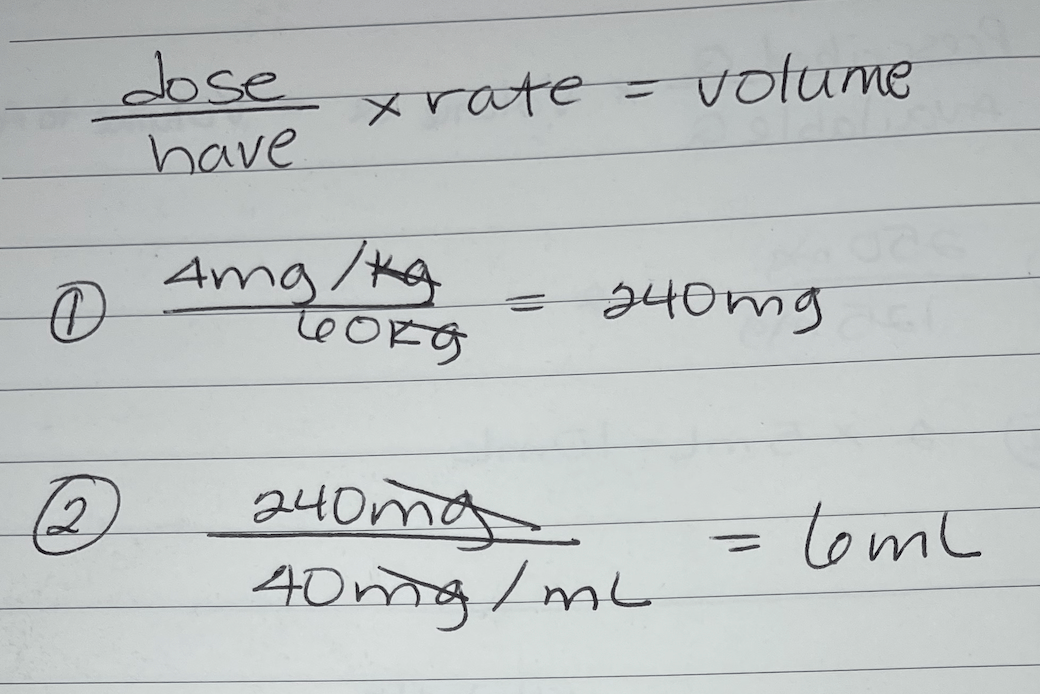 dose
have × rate = volume
① 4mg/kg
60kg = 240mg
② 240mg
40mg/mL = 6mL